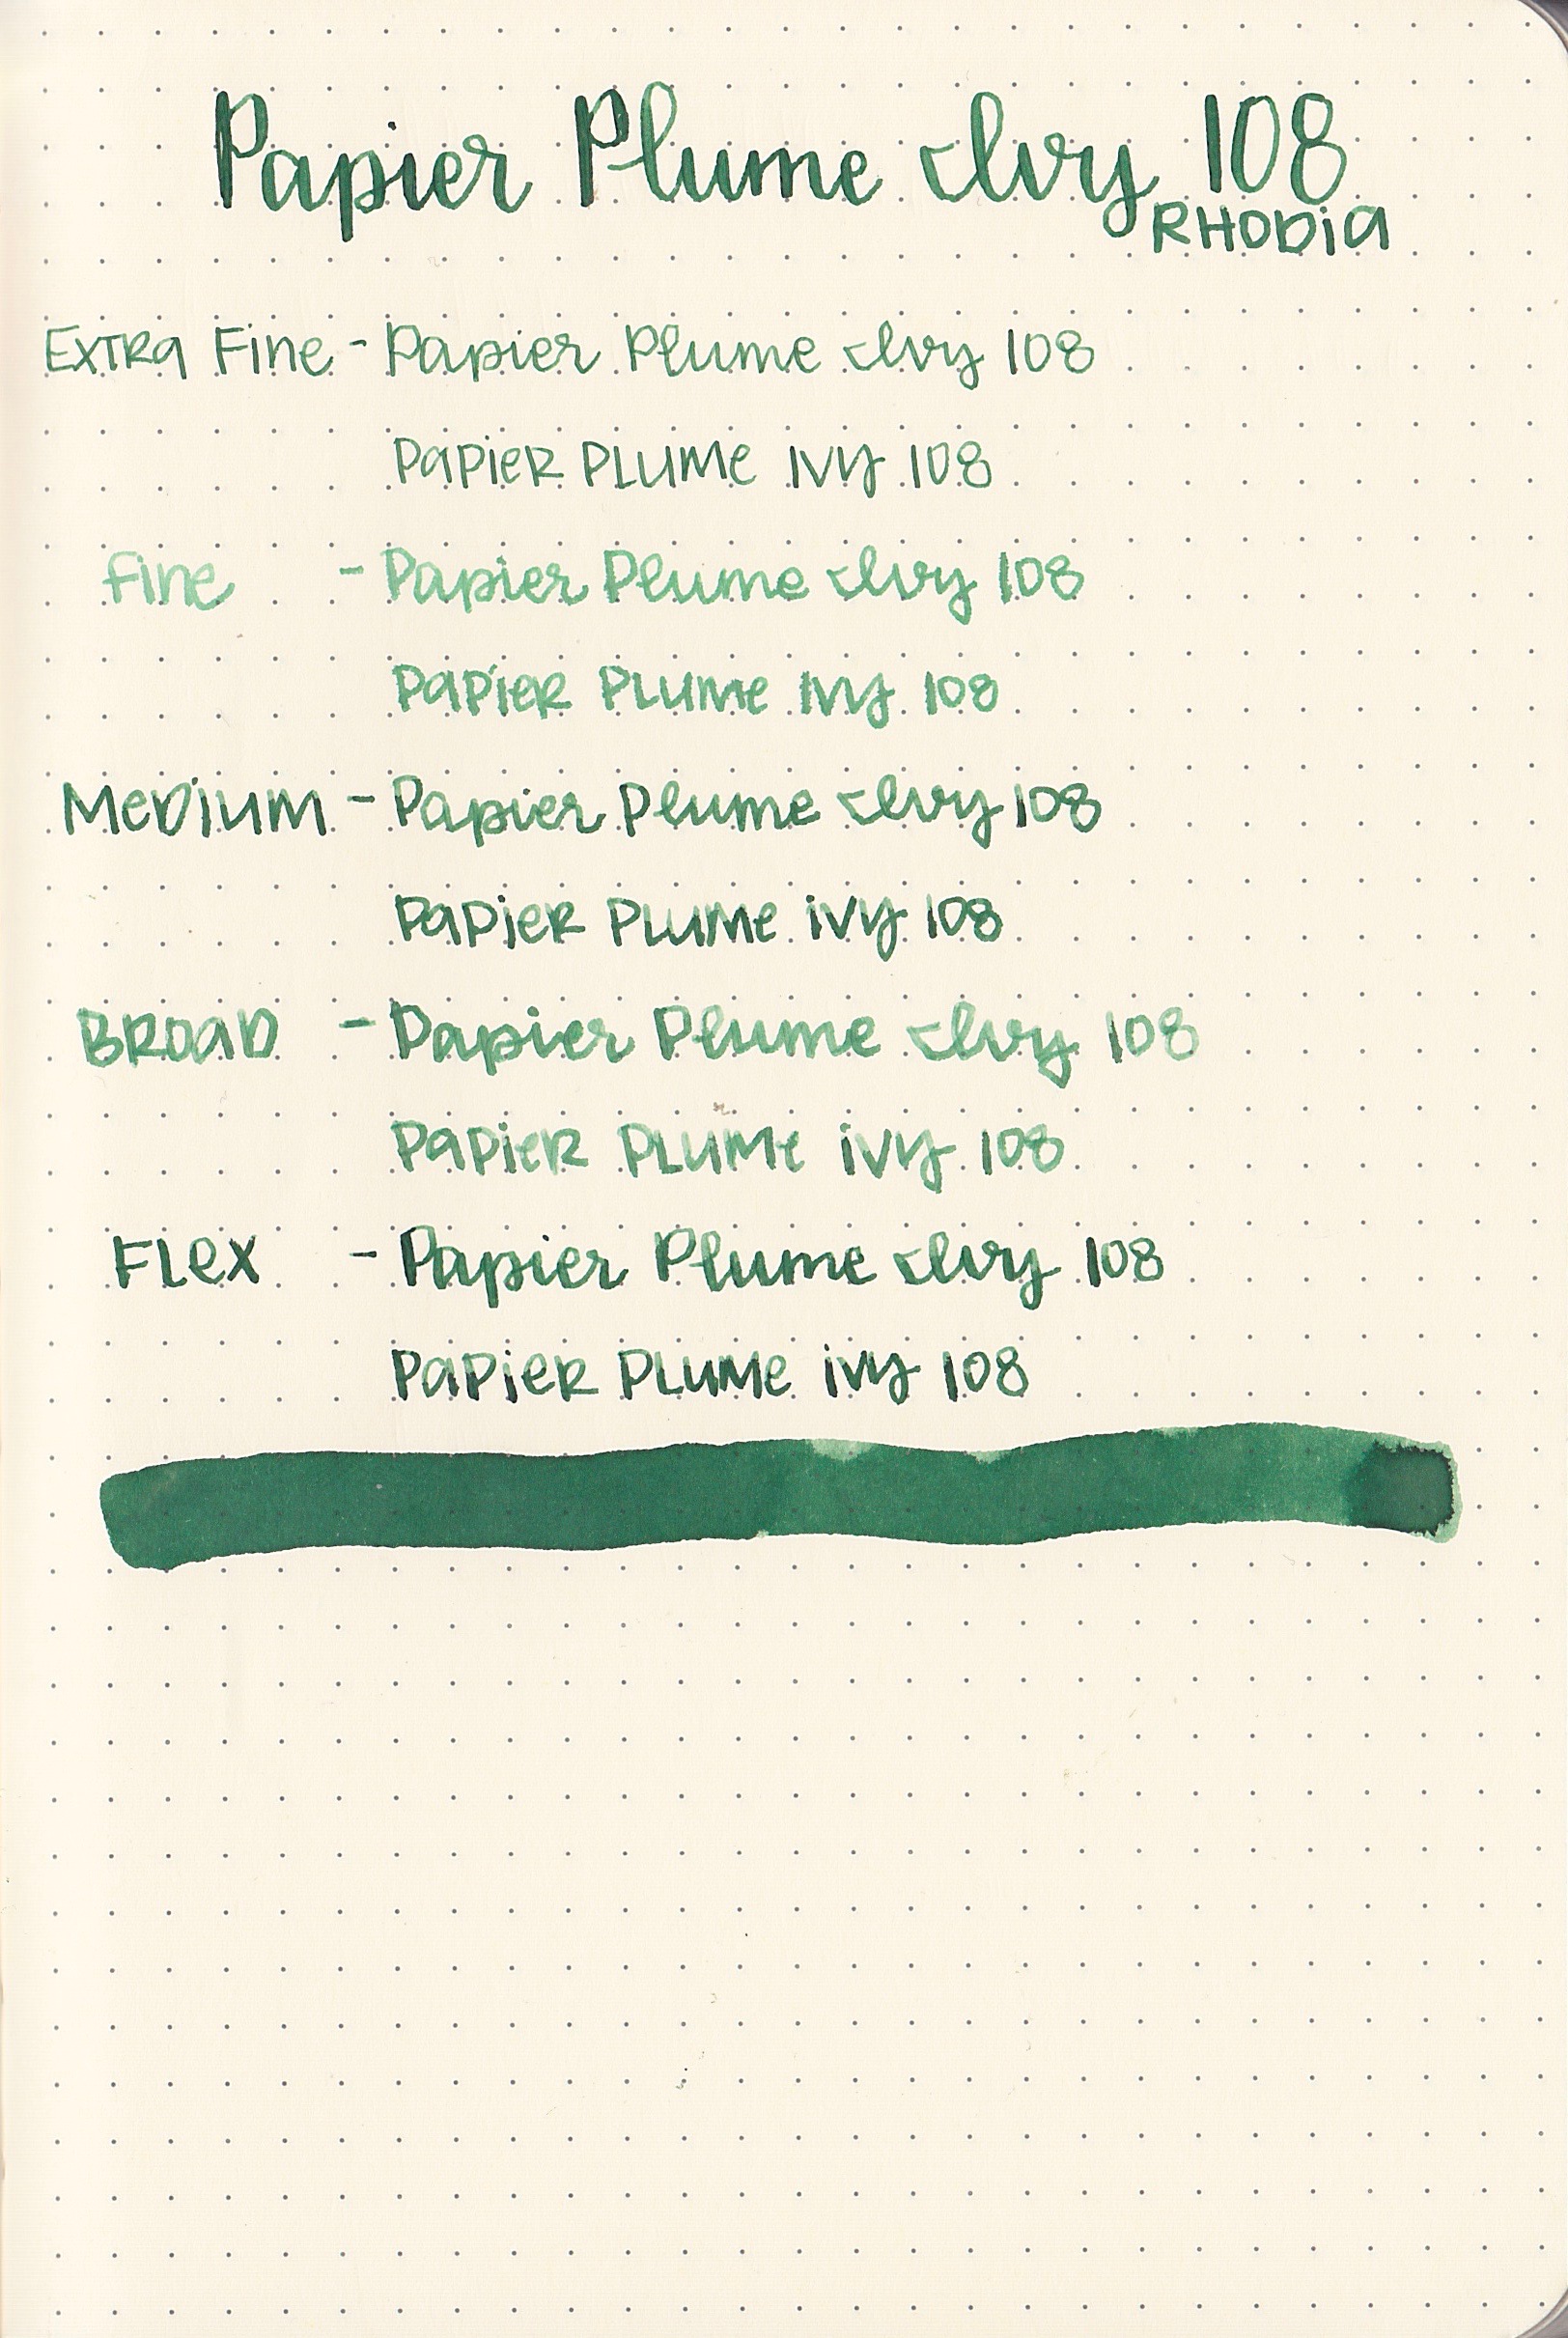 Papier Plume Ivy 108
RHODIA
Extra Fine - Papier Plume Ivy 108
Papier Plume Ivy 108
Fine - Papier Plume Ivy 108
Papier Plume Ivy 108
Medium - Papier Plume Ivy 108
Papier Plume Ivy 108
Broad - Papier Plume Ivy 108
Papier Plume Ivy 108
Flex - Papier Plume Ivy 108
Papier Plume Ivy 108